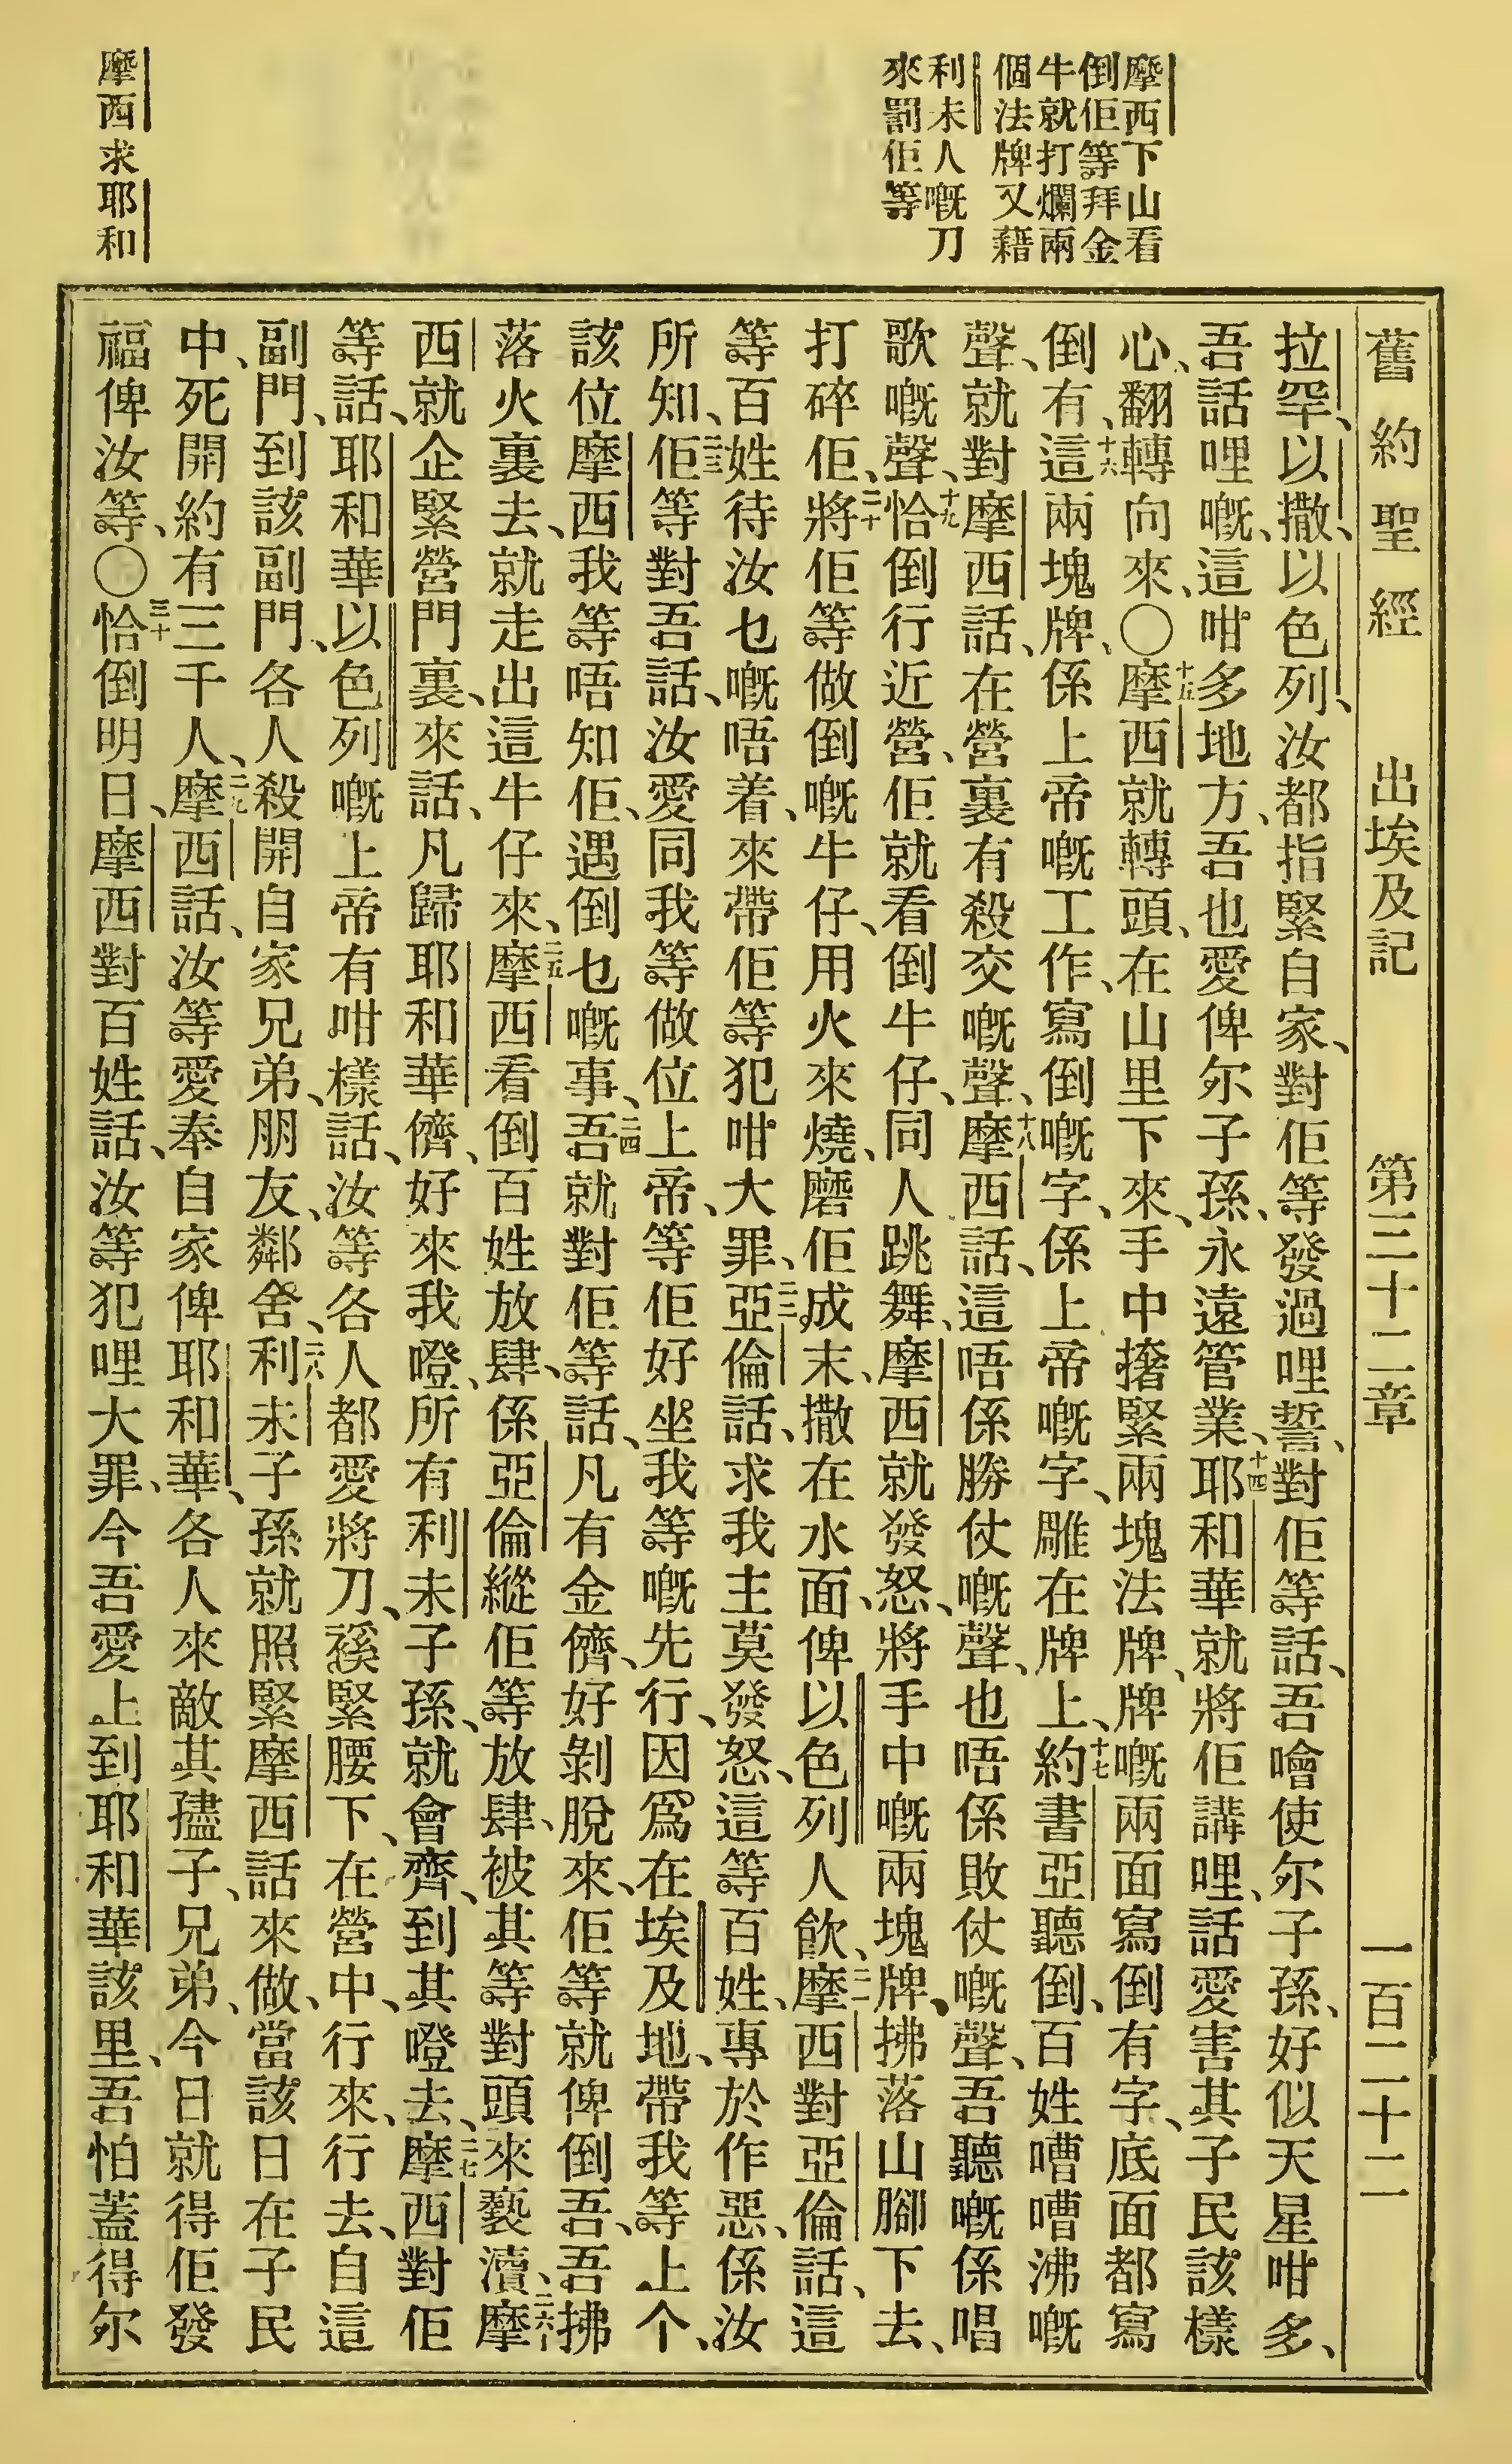 舊約聖經 出埃及記 第三十二章 一百二十二
摩西下山看
倒佢等拜金
牛就打爛兩
個法牌又藉
利未人嘅刀
來罰佢等
摩西求耶和
拉罕、以撒、以色列、汝都指緊自家、對佢等發過哩誓、對佢等話、吾噲使尔子孫、好似天星咁多、
吾話哩嘅、這咁多地方、吾也愛俾尔子孫、永遠管業、十四耶和華就將佢講哩、話愛害其子民該樣
心、翻轉向來、〇十五摩西就轉頭、在山里下來、手中撦緊兩塊法牌、牌嘅兩面寫倒有字、底面都寫
倒有、十六這兩塊牌、係上帝嘅工作、寫倒嘅字、係上帝嘅字、雕在牌上、十七約書亞聽倒、百姓嘈嘈沸嘅
聲、就對摩西話、在營裏有殺交嘅聲、十八摩西話、這唔係勝仗嘅聲、也唔係敗仗嘅聲、吾聽嘅係唱
歌嘅聲、十九恰倒行近營、佢就看倒牛仔、同人跳舞、摩西就發怒、將手中嘅兩塊牌、拂落山腳下去、
打碎佢、二十將佢等做倒嘅牛仔、用火來燒、磨佢成末、撒在水面、俾以色列人飲、二一摩西對亞倫話、這
等百姓待汝乜嘅唔着、來帶佢等犯咁大罪、二二亞倫話、求我主莫發怒、這等百姓、專於作惡、係汝
所知、二三佢等對吾話、汝愛同我等做位上帝、等佢好坐我等嘅先行、因爲在埃及地、帶我等上个、
該位摩西我等唔知佢、遇倒乜嘅事、二四吾就對佢等話、凡有金儕、好剝脫來、佢等就俾倒吾、吾拂
落火裏去、就走出這牛仔來、二五摩西看倒百姓放肆、係亞倫縱佢等放肆、被其等對頭來褻瀆、二六摩
西就企緊營門裏、來話、凡歸耶和華儕、好來我噔、所有利未子孫、就會齊、到其噔去、二七摩西對佢
等話、耶和華以色列嘅上帝有咁樣話、汝等各人都愛將刀、繫緊腰下、在營中、行來、行去、自這
副門、到該副門、各人殺開自家兄弟、朋友、鄰舍、二八利未子孫就照緊摩西話來做、當該日在子民
中、死開約有三千人、二九摩西話、汝等愛奉自家俾耶和華、各人來敵其孻子、兄弟、今日就得佢發
福俾汝等、〇三十恰倒明日、摩西對百姓話、汝等犯哩大罪、今吾愛上到耶和華該里、吾怕蓋得尔